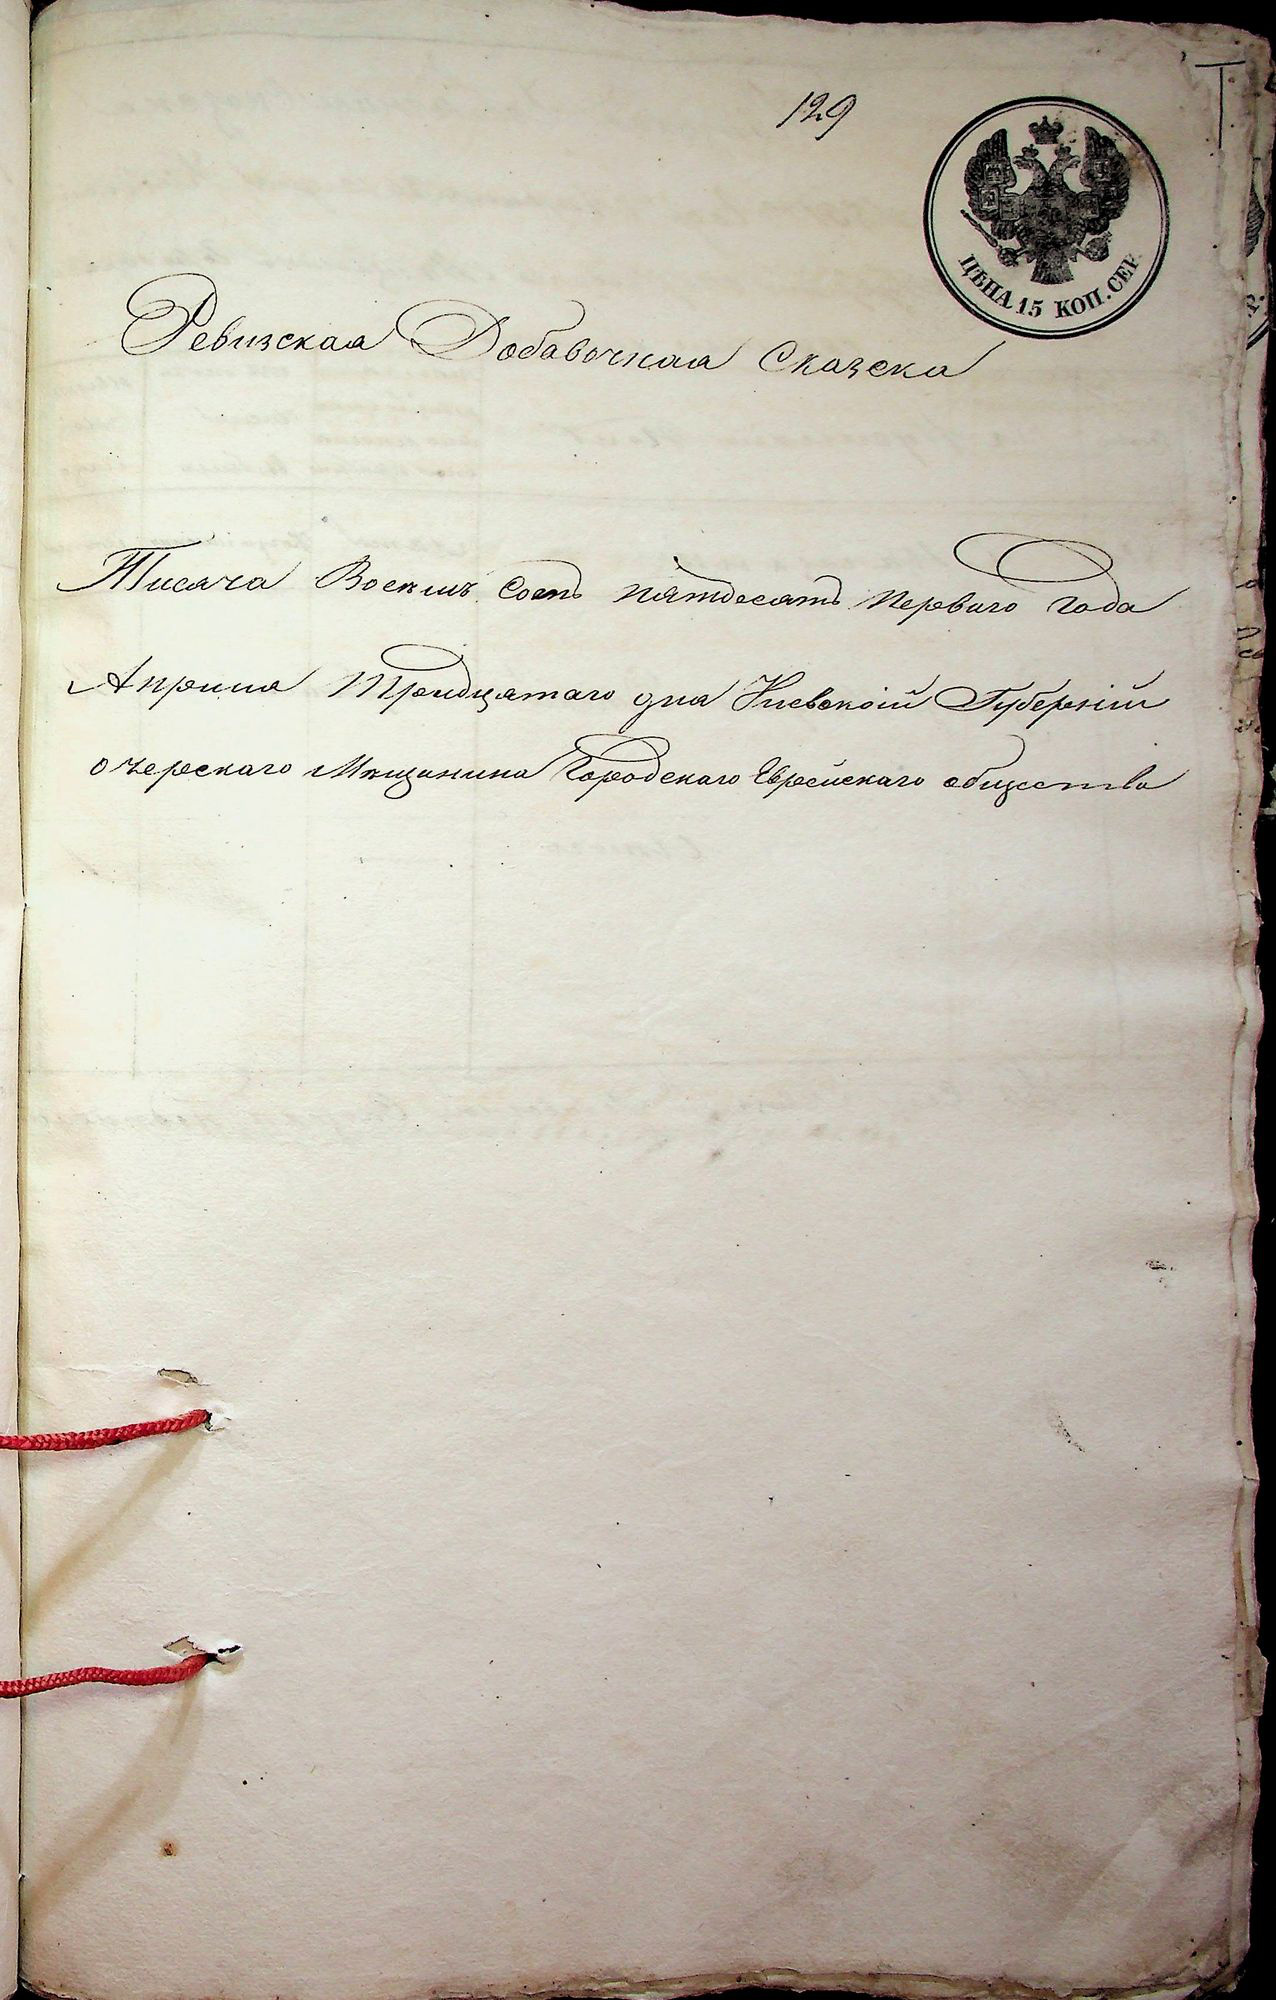 129
ЦѢНА 15 КОП. СЕР.
Ревизская Добавочная Сказка
Тисяча Восемъ Сотъ пятдесятъ Перваго Года
Апреля Тридцятаго дня Киевской Губерніи
о черскаго Мещанина Городскаго Еврейскаго общества